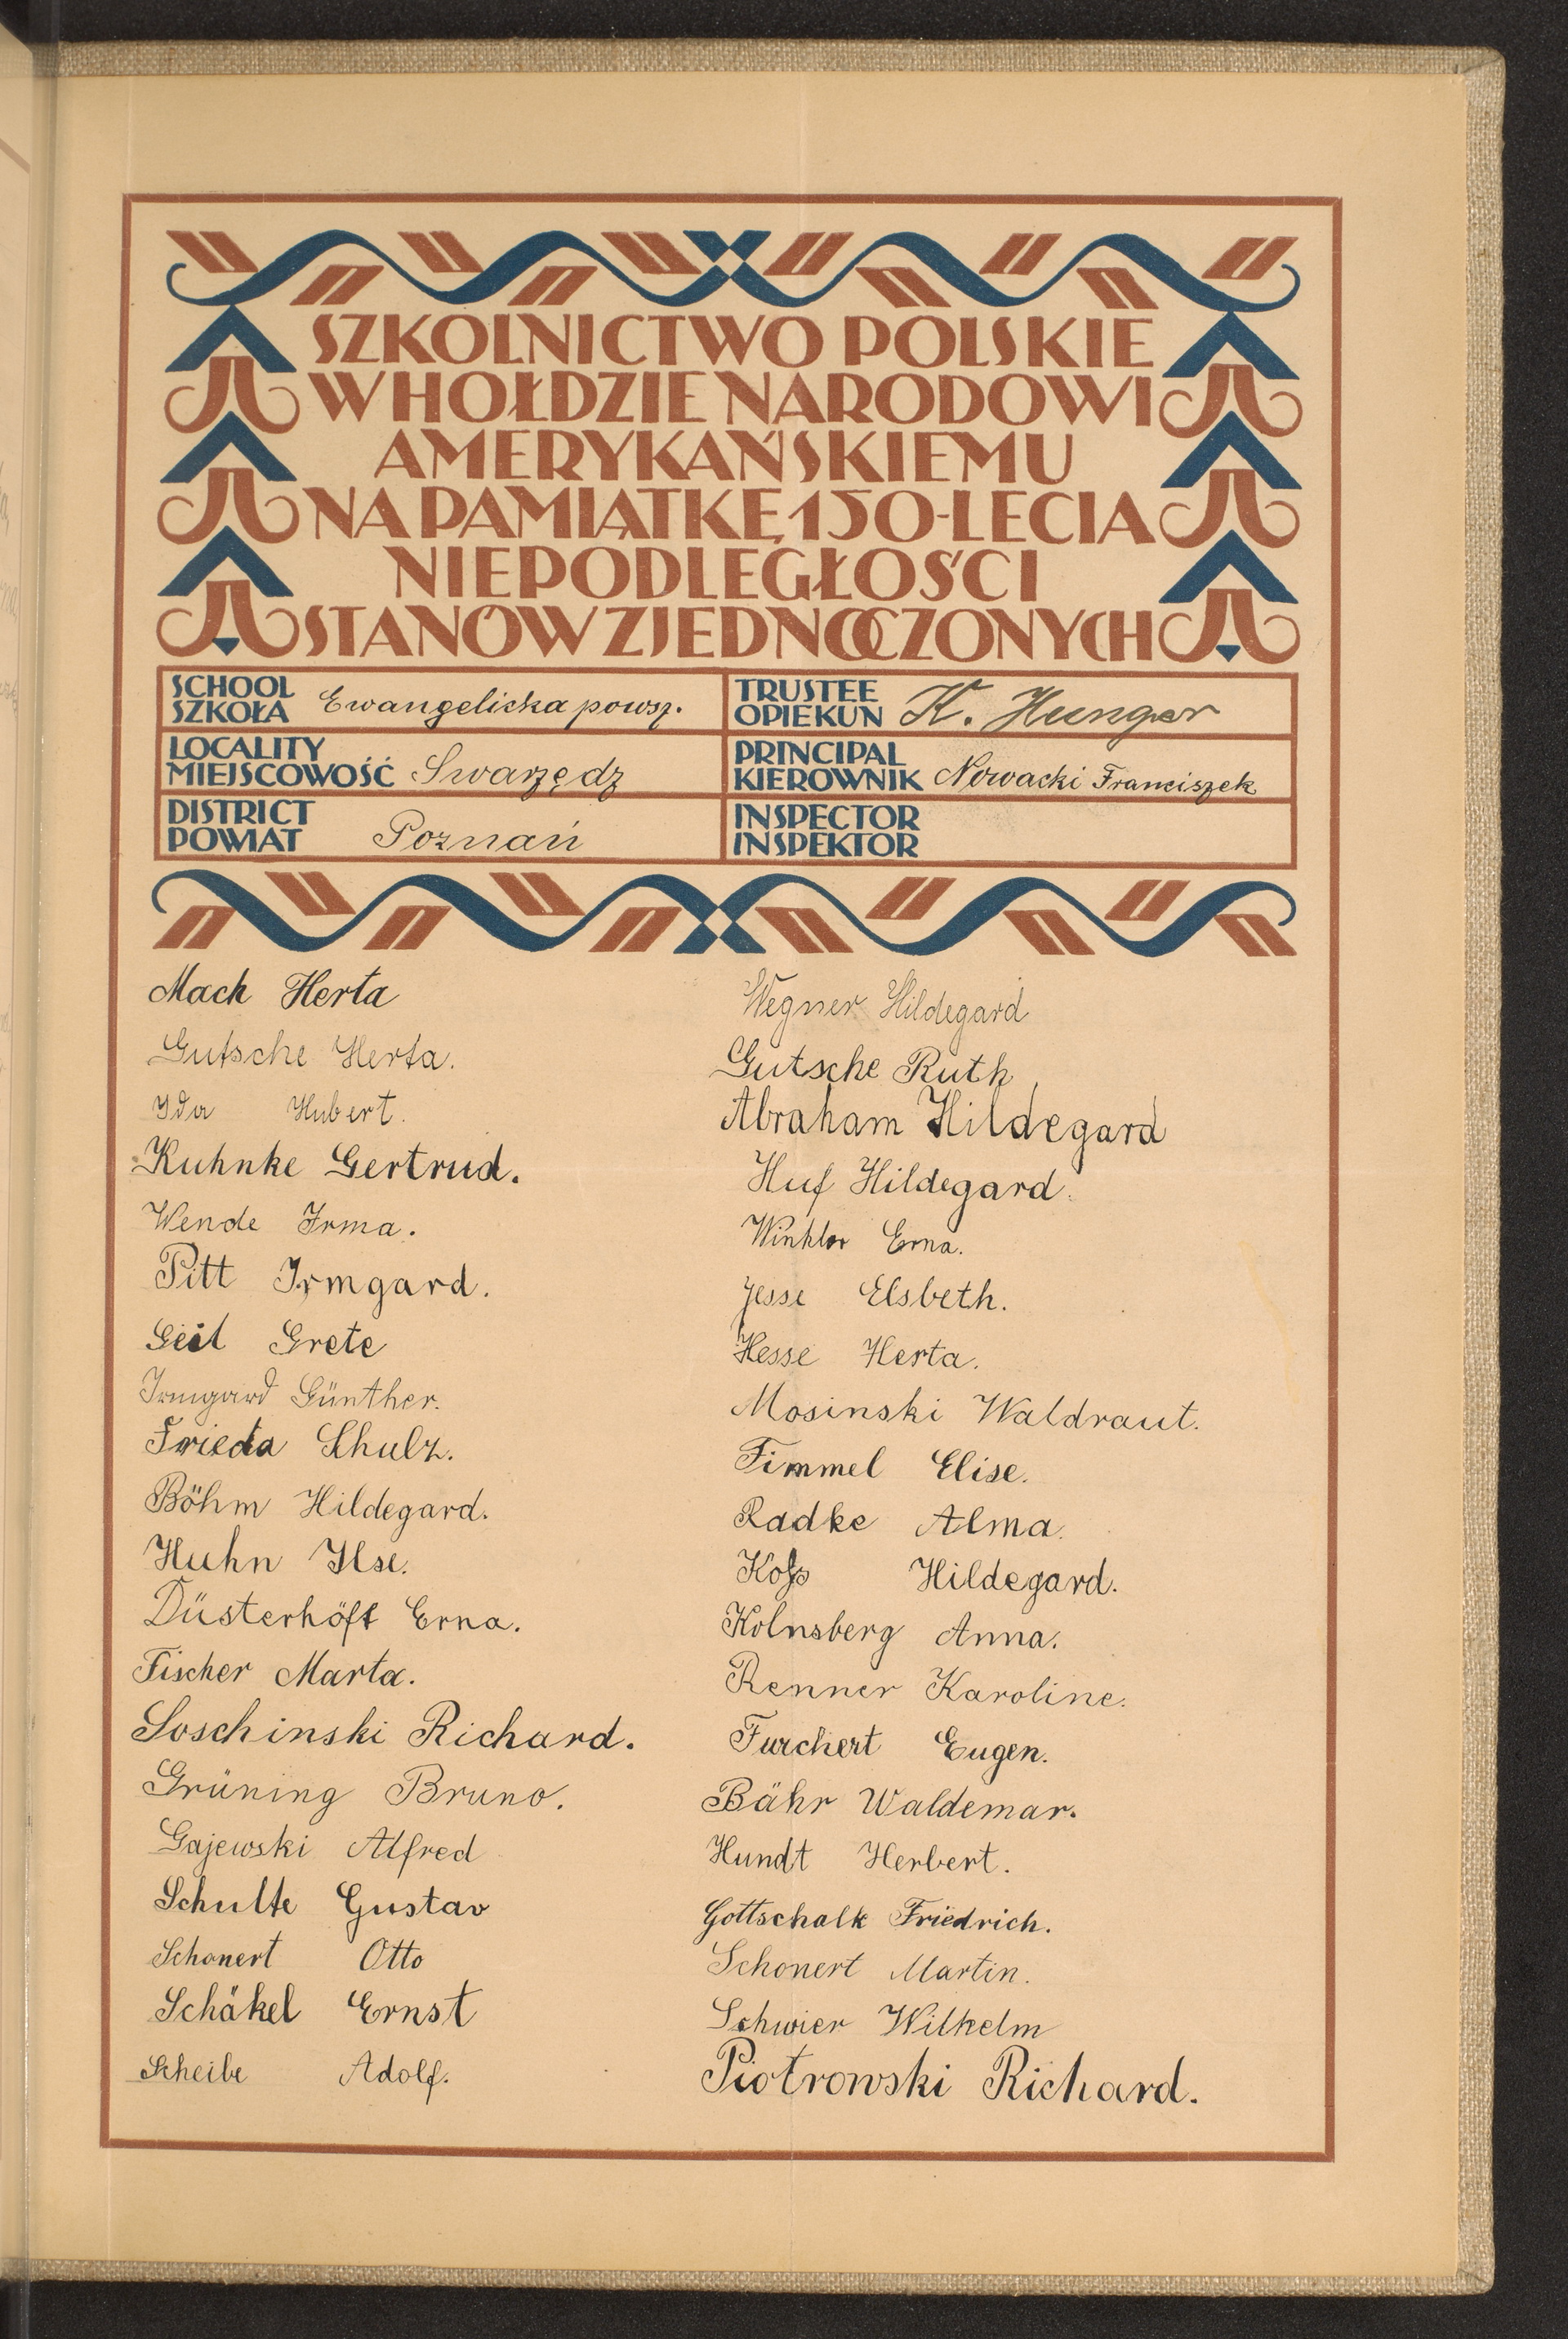 SZKOLNICTWO POLSKIE
W HOŁDZIE NARODOWI
AMERYKAŃSKIEMU
NA PAMIĄTKĘ 150-LECIA
NIEPODLEGŁOŚCI
STANÓW ZJEDNOCZONYCH
SCHOOL
SZKOŁA Ewangelicka powsz.
LOCALITY
MIEJSCOWOŚĆ Swarzędz
DISTRICT
POWIAT Poznań
TRUSTEE
OPIEKUN K. Hunger
PRINCIPAL
KIEROWNIK Nowacki Franciszek
INSPECTOR
INSPEKTOR
Mach Herta
Gutsche Herta.
Ida Hubert.
Kuhnke Gertrud.
Wende Irma.
Pitt Irmgard.
Geil Grete
Irmgard Günther.
Frieda Schulz.
Böhm Hildegard.
Huhn Ilse.
Düsterhöft Erna.
Fischer Marta.
Soschinski Richard.
Grüning Bruno.
Gajewski Alfred
Schulte Gustav
Schonert Otto
Schäkel Ernst
Scheibe Adolf.
Wegner Hildegard
Gutsche Ruth
Abraham Hildegard
Huf Hildegard.
Winkler Erna.
Jesse Elsbeth.
Hesse Herta.
Mosinski Waldraut.
Fimmel Elise.
Radke Alma.
Koß Hildegard.
Kolnsberg Anna.
Renner Karoline.
Furchert Eugen.
Bähr Waldemar.
Hundt Herbert.
Gottschalk Friedrich.
Schonert Martin.
Schwier Wilhelm
Piotrowski Richard.